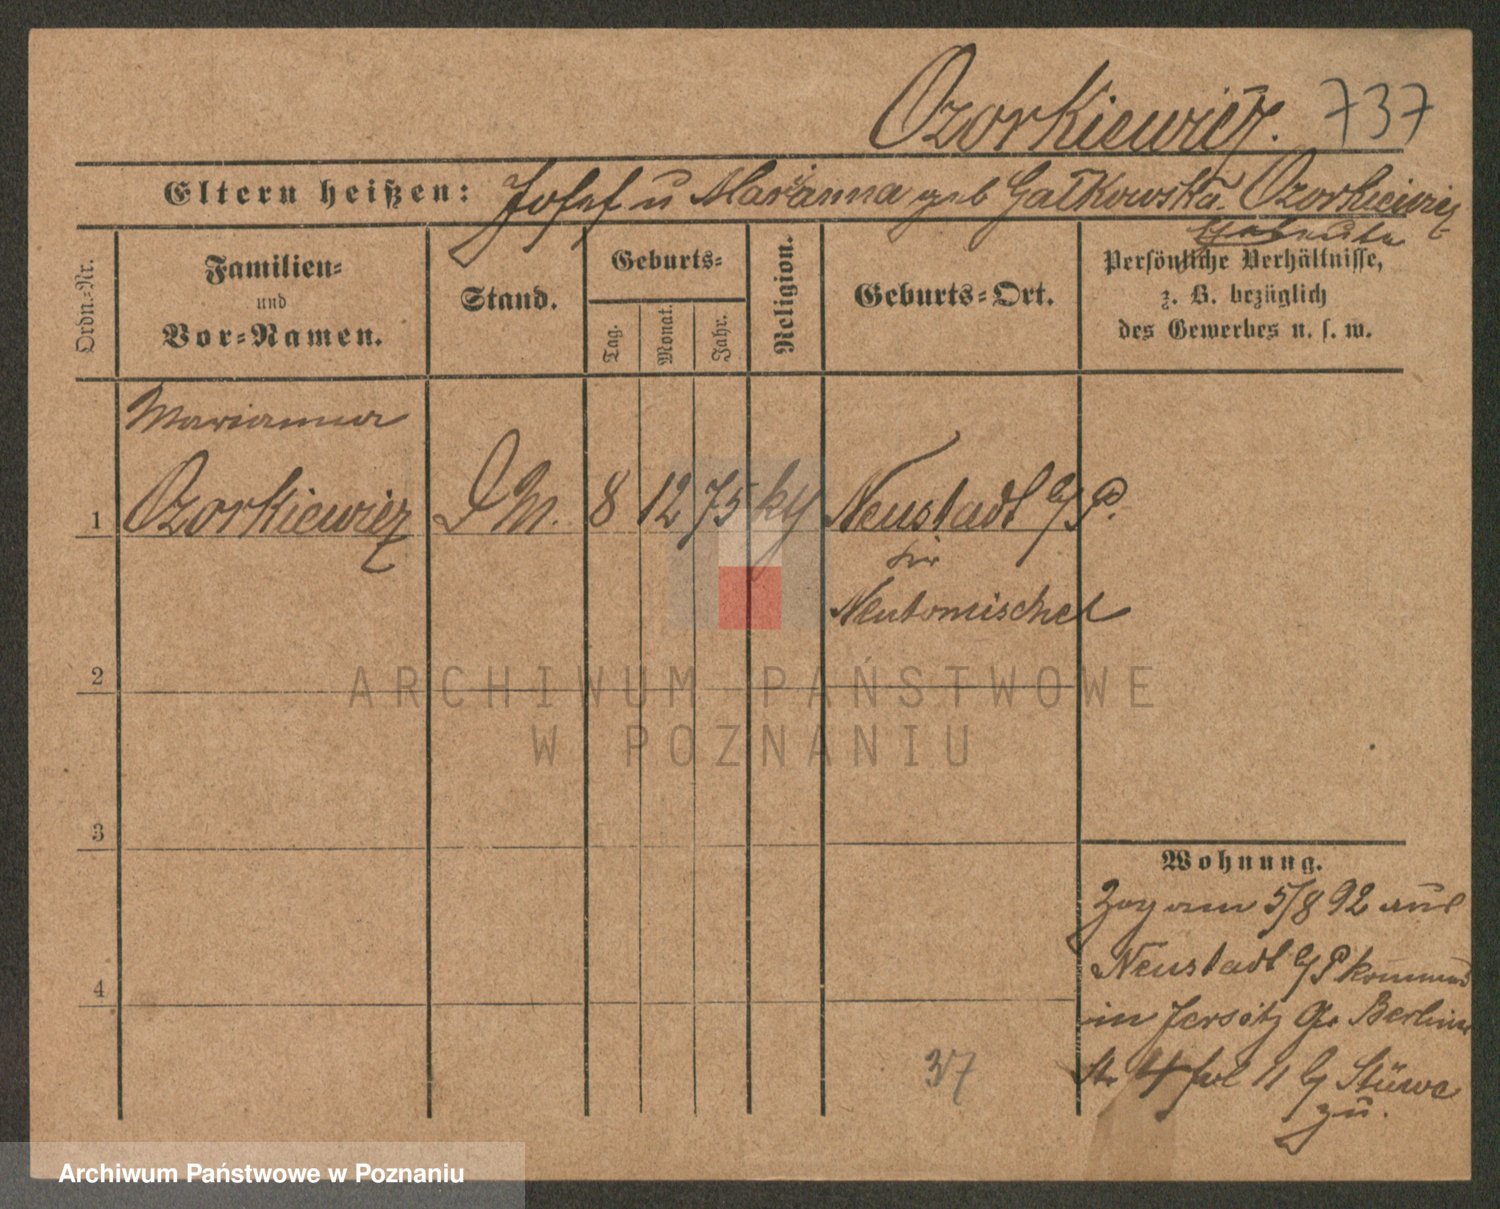 Ozorkiewicz. 737
Eltern heißen: Josef u Marianna geb Gałkowska. Ozorkiewicz
Ordn.-Nr.
Familien-
und
Vor-Namen.
Stand.
Geburts-
Tag.
Monat.
Jahr.
Religion.
Geburts-Ort.
Persönliche Verhältnisse,
z. B. bezüglich
des Gewerbes u. s. w.
Marianna
1 Ozorkiewicz 8 12 75 Neustadt P.
Neutomischel
2
3
4
Wohnung.
Zog am 5/8 92 aus
Neustadt P kommend
in Jersitz Gr Berliner
Str 11 Stüwe
zu.
37
ARCHIWUM PAŃSTWOWE
W POZNANIU
Archiwum Państwowe w Poznaniu